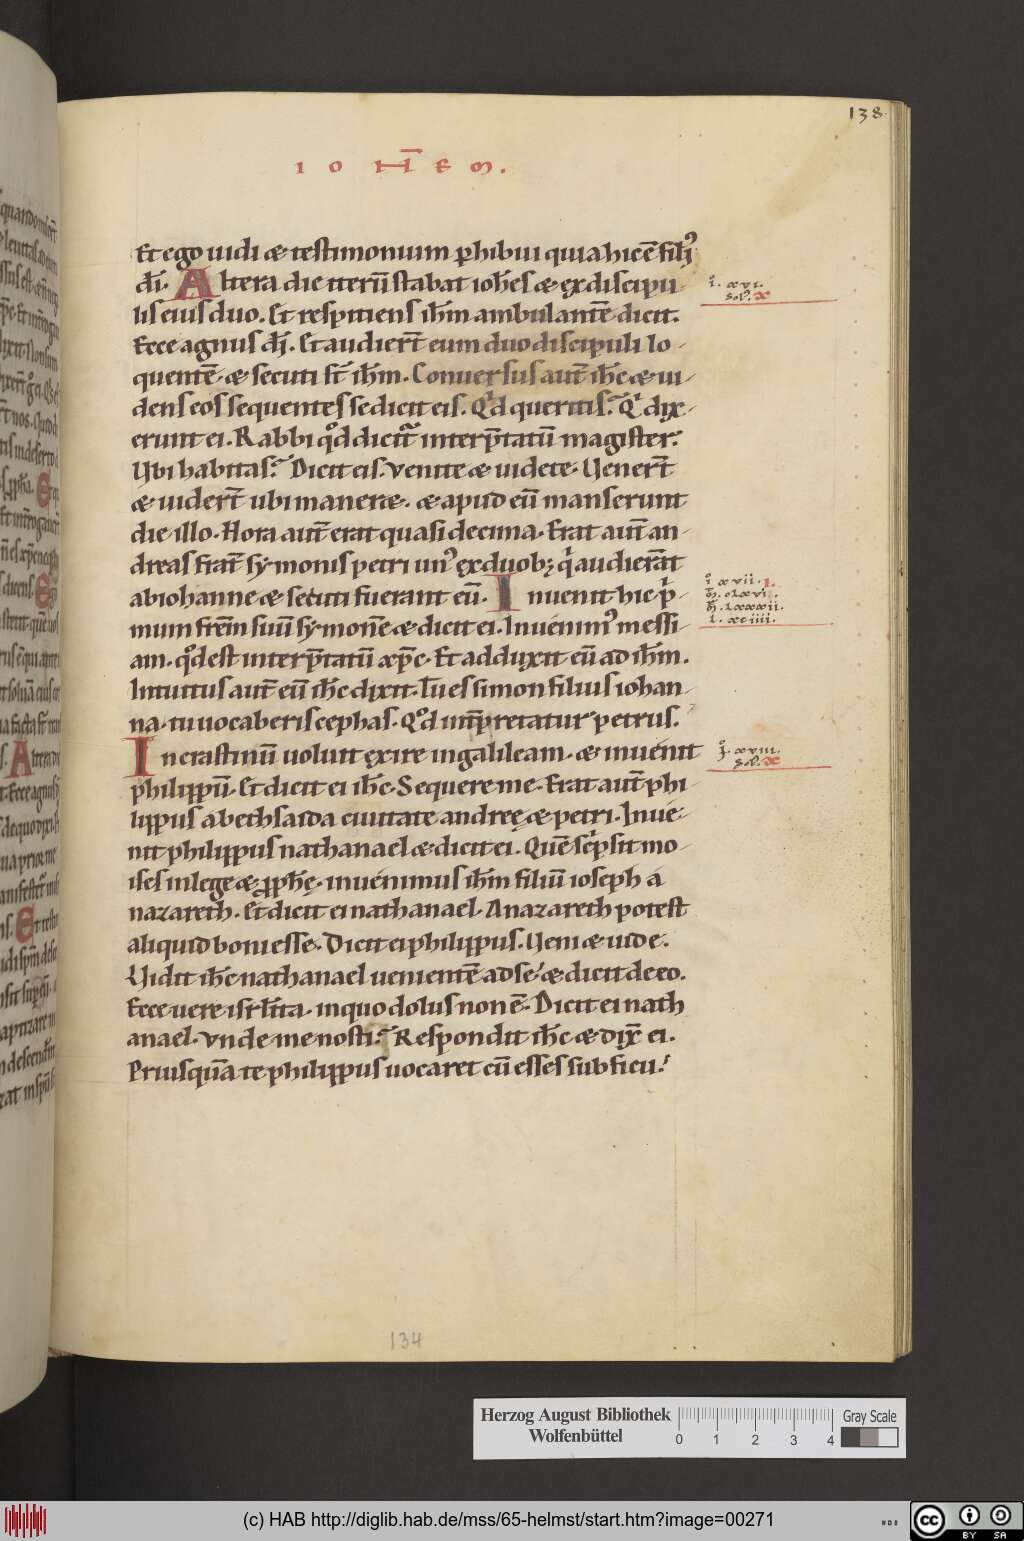 138
IOHEM.
Et ego uidi & testimonium phibui quia hic ē fili᾽
dī. Altera die iterū stabat ioħes & ex discipu-
lis eius duo. Et respiciens iħm ambulantē dicit.
Ecce agnus dī. Et audiert̄ eum duo discipuli lo-
quentē. & secuti st̄ iħm. Conuersus aut̄ iħc & ui-
dens eos sequentes se dicit eis. Qd queritis. Q dix-
erunt ei. Rabbi qd dicit interp̄tatū magister.
Ubi habitas. Dicit eis. Venite & uidete. Uenert̄
& uidert̄ ubi maner&. & apud eū manserunt
die illo. Hora aut̄ erat quasi decima. Erat aut̄ an-
dreas frat̄ symonis petri un᾽ ex duob; q audierāt
ab iohanne & secuti fuerant eū. Inuenit hic p-
mum frēm suū symonē & dicit ei. Inuenim᾽ messi-
am. qd est interp̄tatū xp̄c. Et adduxit eū ad iħm.
Intuitus aut̄ eū iħc dixit. Tu es simon filius iohan-
na. tu uocaberis cephas. Qd int̄pretatur petrus.
In crastinū uoluit exire in galileam. & inuenit
philippū. Et dicit ei iħc. Sequere me. Erat aut̄ phi-
lippus a bethsaida ciuitate andreę & petri. Inue-
nit philippus nathanael & dicit ei. Quē scpsit mo-
ises in lege & pph̄ę. inuenimus iħm filiū ioseph a
nazareth. Et dicit ei nathanael. A nazareth potest
aliquid boni esse. Dicit ei philippus. Ueni & uide.
Uidit iħc nathanael uenientē ad se & dicit de eo.
Ecce uere isrl̄ita. in quo dolus non ē. Dicit ei nath
anael. Vnde me nosti. Respondit iħc & dix̄ ei.
Priusquā te philippus uocaret cū esses sub ficu.
134
Herzog August Bibliothek
Wolfenbüttel
0 1 2 3 4
Gray Scale
(c) HAB http://diglib.hab.de/mss/65-helmst/start.htm?image=00271
cc BY SA